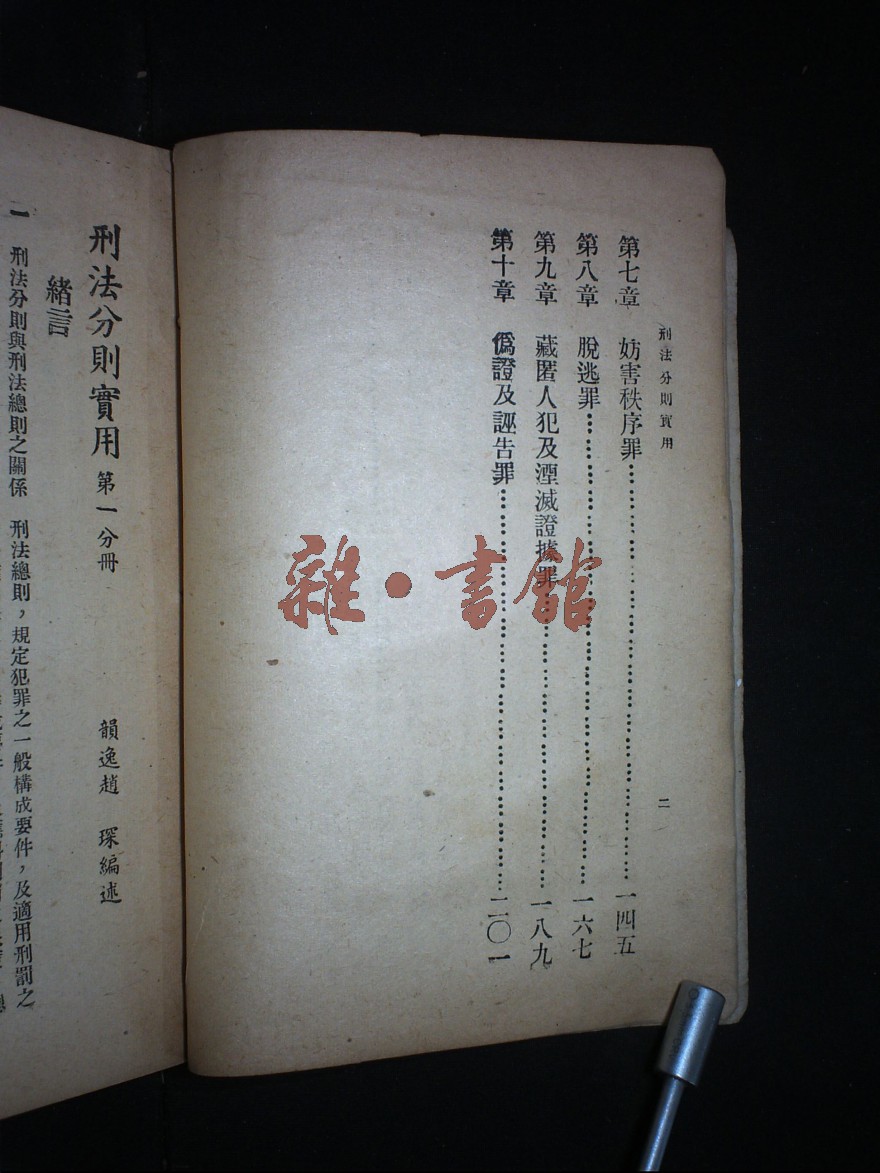 刑法分則實用
二
第七章 妨害秩序罪…………一四五
第八章 脫逃罪…………一六七
第九章 藏匿人犯及湮滅證據罪…………一八九
第十章 僞證及誣告罪…………二〇一
雜·書館
刑法分則實用 第一分冊
韻逸趙 琛編述
緒言
一 刑法分則與刑法總則之關係 刑法總則，規定犯罪之一般構成要件，及適用刑罰之